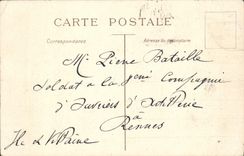 CARTE POSTALE
Correspondance
Adresse du destinataire
Mr Pierre Bataille
Soldat à la 7eme Compagnie
d'Ouvriers d'Artillerie
à
Rennes
Ile & Vilaine